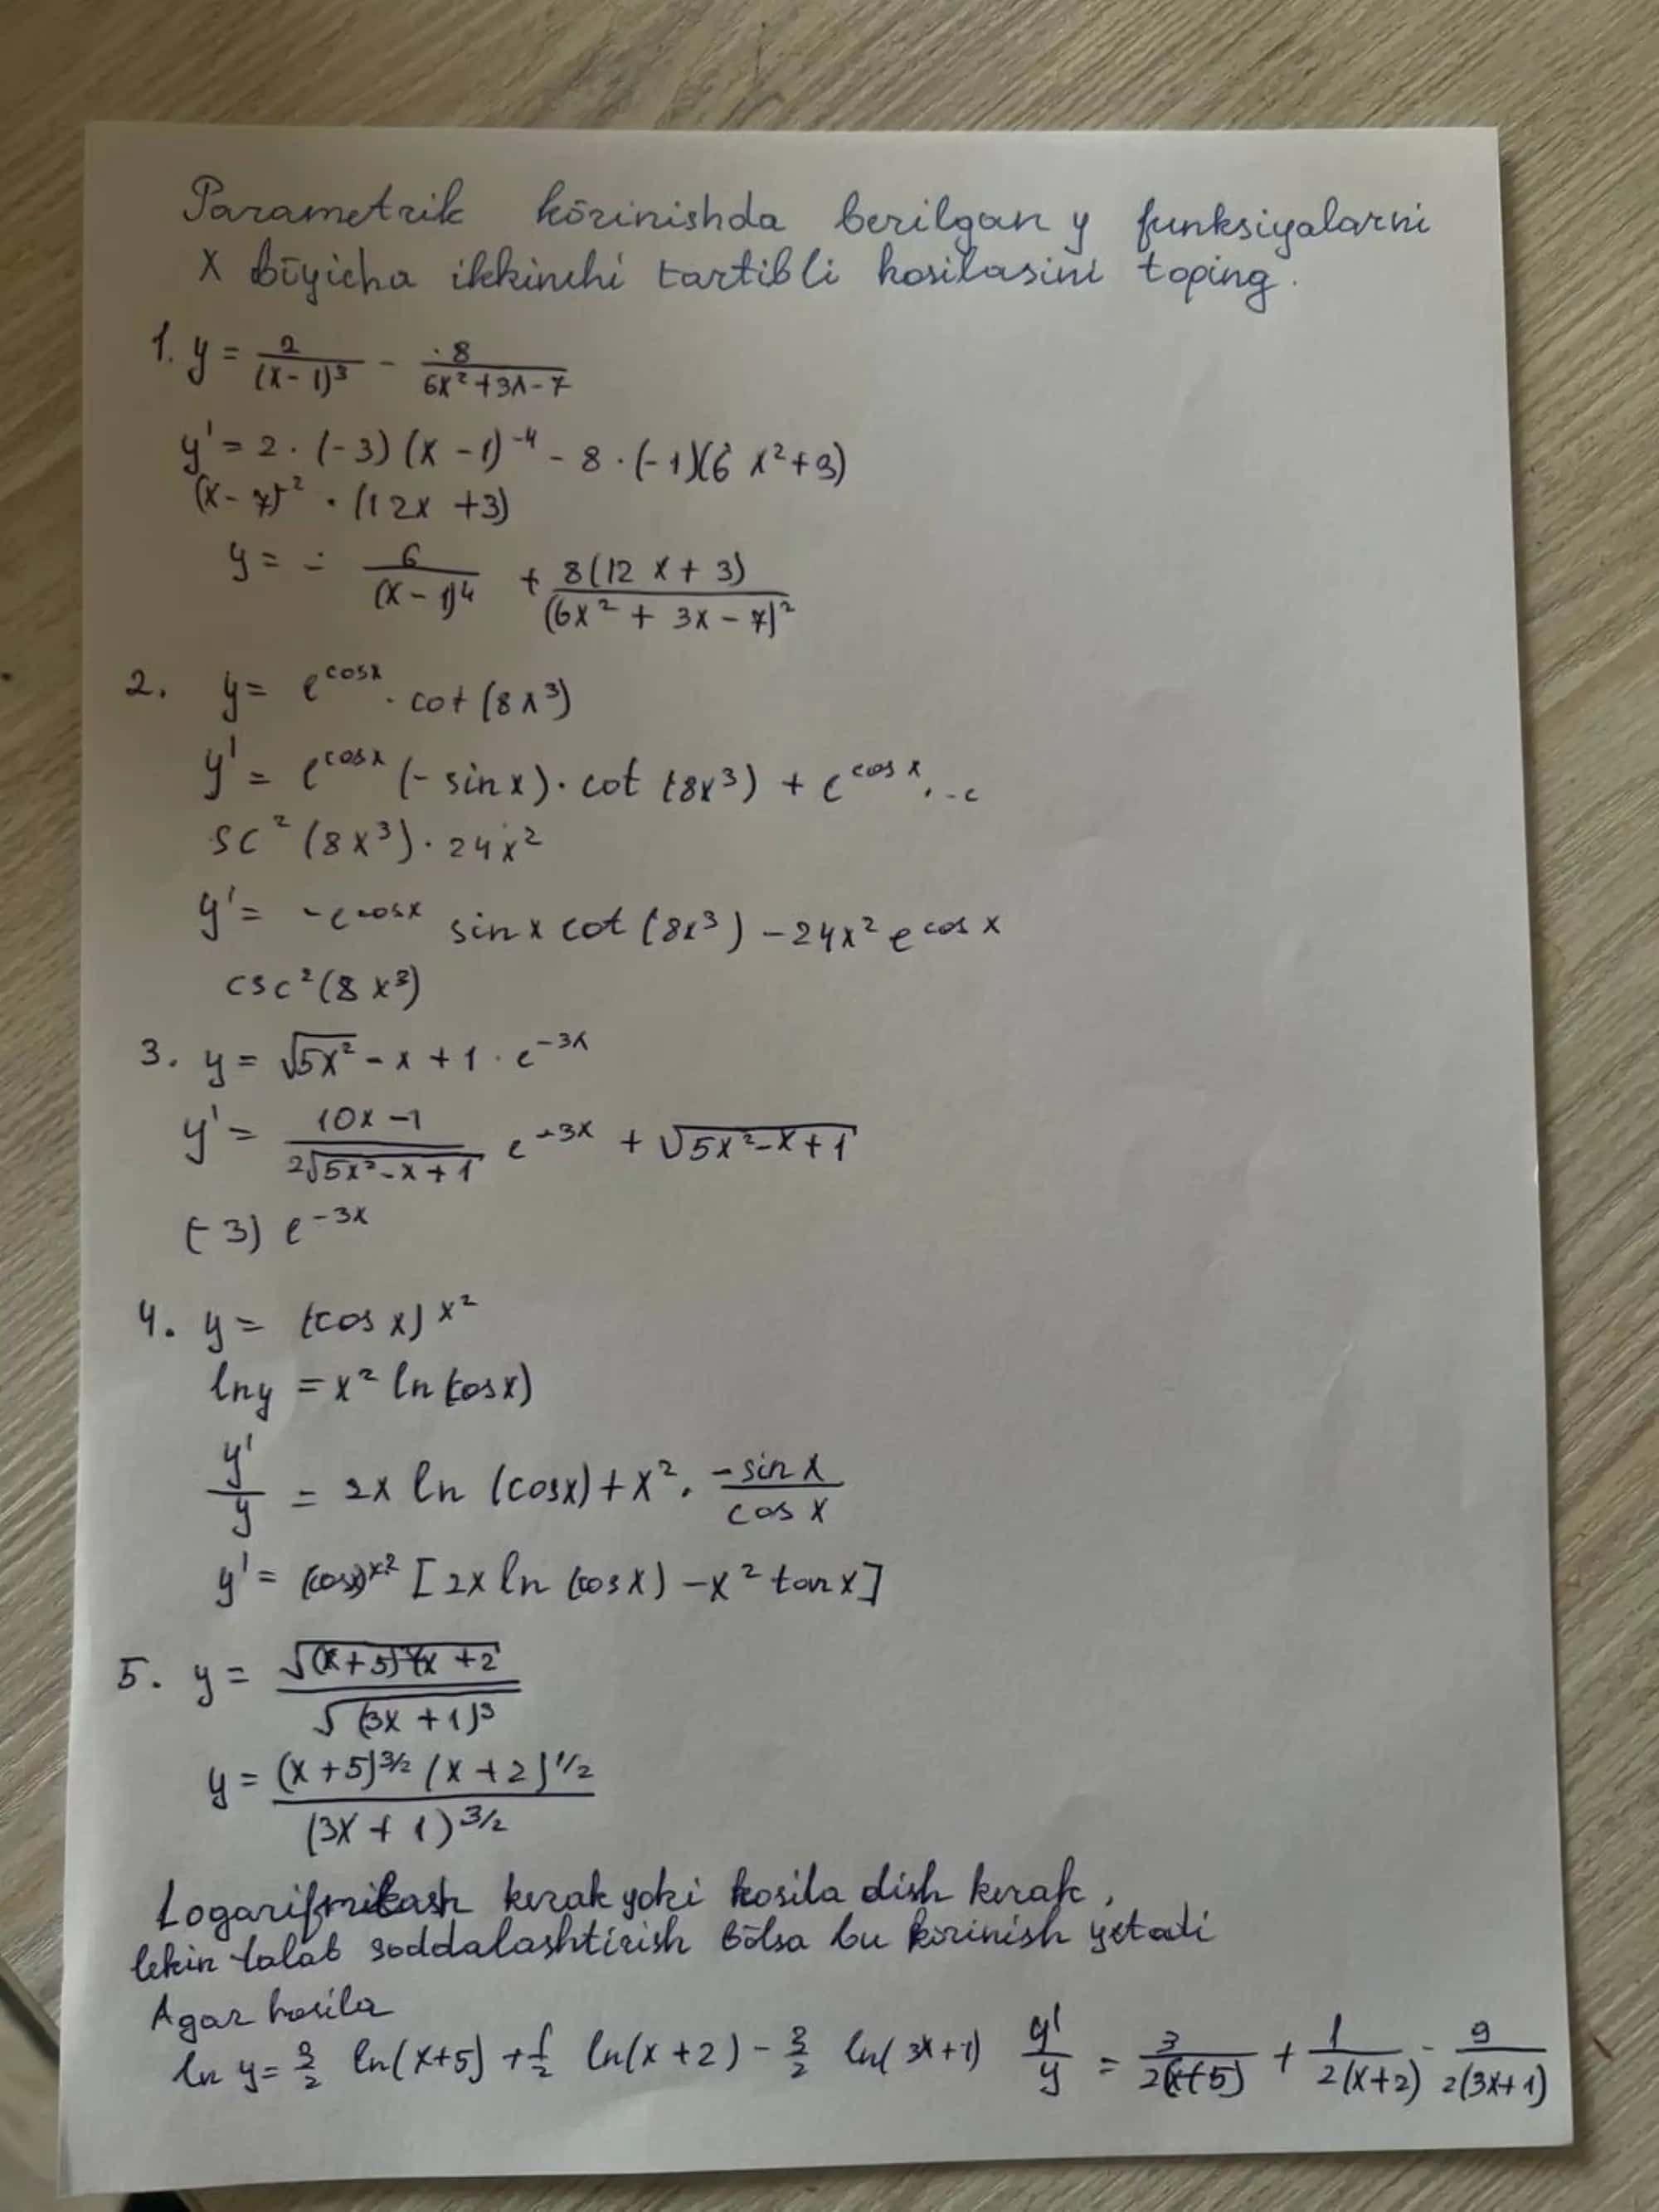 Parametrik kōrinishda berilgan y funksiyalarni
x bōyicha ikkinchi tartibli hosilasini toping.
1. y = 2/(x-1)^3 - 8/(6x^2+3x-7)
y' = 2·(-3)(x-1)^-4 - 8·(-1)(6x^2+3)
(x-7)^-2 · (12x+3)
y = - 6/(x-1)^4 + 8(12x+3)/(6x^2+3x-7)^2
2. y = e^cosx · cot(8x^3)
y' = e^cosx (-sinx)·cot(8x^3) + e^cosx · -c
sc^2(8x^3)·24x^2
y' = -e^cosx sinx cot(8x^3) - 24x^2 e^cosx
csc^2(8x^3)
3. y = √(5x^2) - x + 1 · e^-3x
y' = (10x-1)/(2√(5x^2-x+1)) e^-3x + √(5x^2-x+1)
(-3) e^-3x
4. y = (cosx)^x^2
lny = x^2 ln(cosx)
y'/y = 2x ln(cosx) + x^2 · (-sinx)/(cosx)
y' = (cosx)^x^2 [2x ln(cosx) - x^2 tanx]
5. y = √((x+5)^3(x+2))/√((3x+1)^3)
y = (x+5)^3/2 (x+2)^1/2/(3x+1)^3/2
kerak yoki hosila dish kerak,
lekin talab soddalashtirish bōlsa bu kōrinish yetadi
Agar hosila
ln y = 3/2 ln(x+5) + 1/2 ln(x+2) - 3/2 ln(3x+1) y'/y = 3/(2(x+5)) + 1/(2(x+2)) - 9/(2(3x+1))